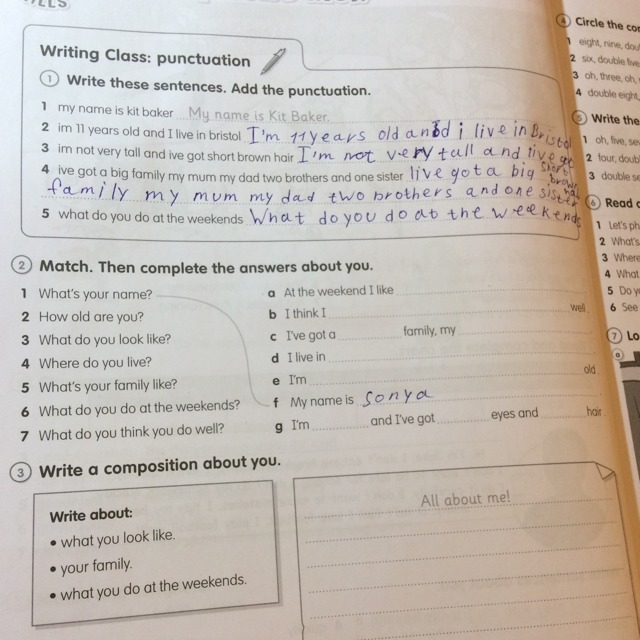 Writing Class: punctuation
1 Write these sentences. Add the punctuation.
1 my name is kit baker My name is Kit Baker.
2 im 11 years old and I live in bristol I'm 11 years old and i live in Bristol
3 im not very tall and ive got short brown hair I'm not very tall and
short
brown
4 ive got a big family my mum my dad two brothers and one sister Ive got a big
family my mum my dad two brothers and one sister
5 what do you do at the weekends What do you do at the weekends
2 Match. Then complete the answers about you.
1 What's your name?
2 How old are you?
3 What do you look like?
4 Where do you live?
5 What's your family like?
6 What do you do at the weekends?
7 What do you think you do well?
a At the weekend I like
b I think I well
c I've got a family, my
d I live in
e I'm old
f My name is sonya
g I'm and I've got eyes and hair
3 Write a composition about you.
Write about:
• what you look like.
• your family.
• what you do at the weekends.
All about me!
4 Circle the
1 eight, nine,
2 six, double five
3 oh, three, oh,
4 double eight,
5 Write the
1 oh, five,
2 four,
3 double
6 Read
1 Let's
2 What's
3 Where
4 What
5 Do
6 See
7